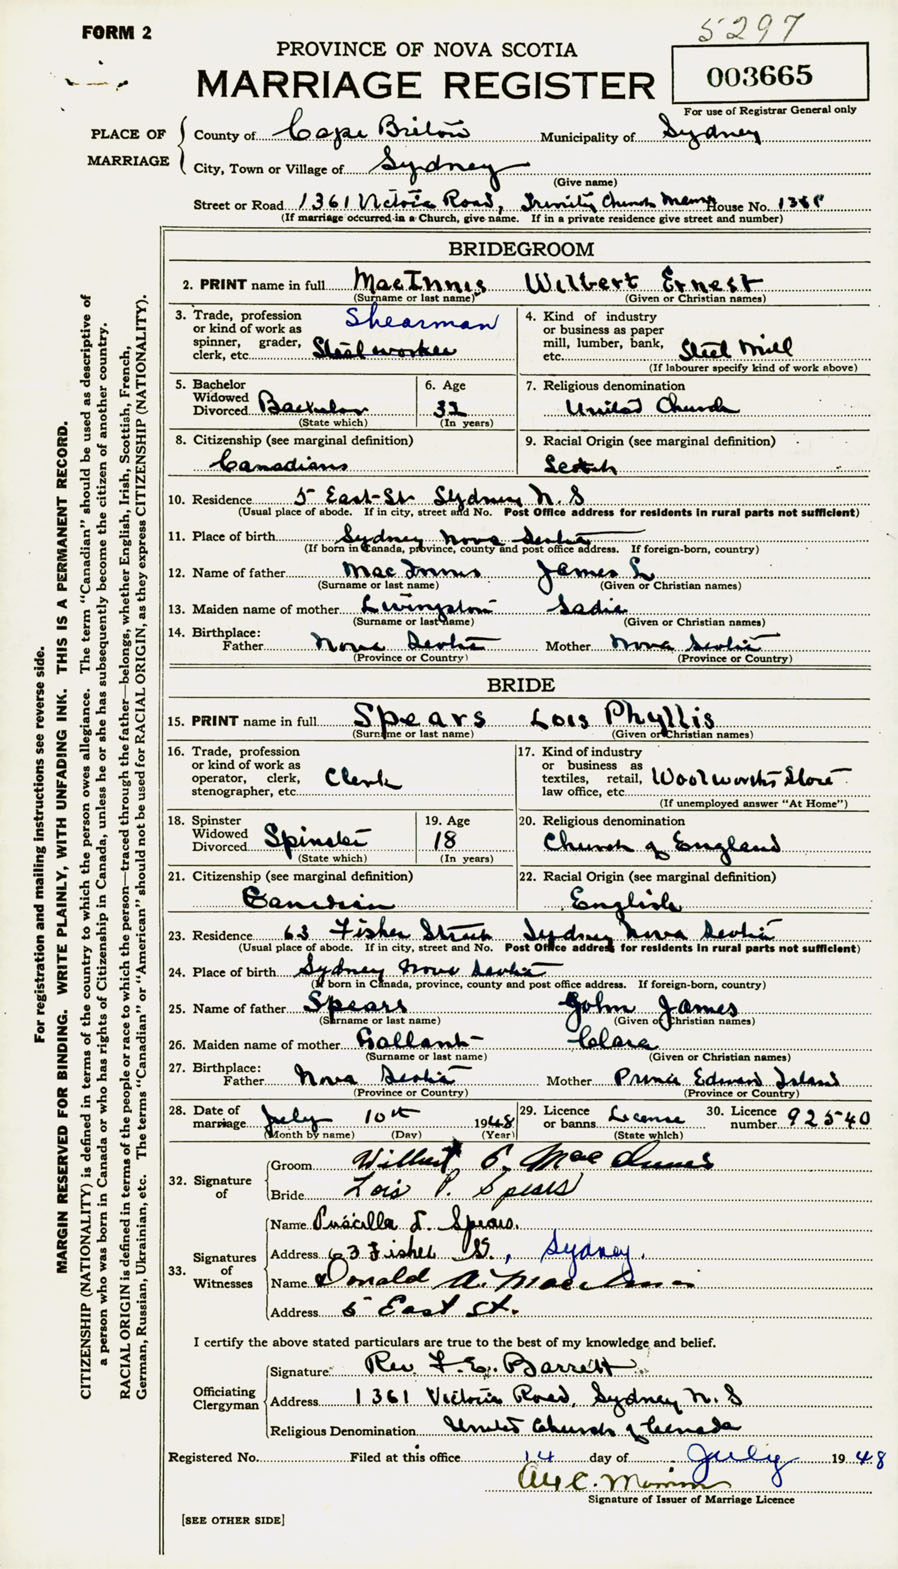 FORM 2
5297
PROVINCE OF NOVA SCOTIA
MARRIAGE REGISTER
003665
For use of Registrar General only
PLACE OF MARRIAGE
County of Cape Breton Municipality of Sydney
City, Town or Village of Sydney
(Give name)
Street or Road 1361 Victoria Road, Trinity Church Manse House No.
(If marriage occurred in a Church, give name. If in a private residence give street and number)
BRIDEGROOM
2. PRINT name in full MacInnis Wilbert Ernest
(Surname or last name) (Given or Christian names)
3. Trade, profession or kind of work as spinner, grader, clerk, etc. Shearman Steelworker
4. Kind of industry or business as paper mill, lumber, bank, etc. Steel Mill
(If labourer specify kind of work above)
5. Bachelor Widowed Divorced Bachelor
(State which)
6. Age 32
(In years)
7. Religious denomination United Church
8. Citizenship (see marginal definition)
Canadians
9. Racial Origin (see marginal definition)
Scotch
10. Residence 5 East St Sydney N.S
(Usual place of abode. If in city, street and No. Post Office address for residents in rural parts not sufficient)
11. Place of birth Sydney Nova Scotia
(If born in Canada, province, county and post office address. If foreign-born, country)
12. Name of father MacInnis James L
(Surname or last name) (Given or Christian names)
13. Maiden name of mother Livingston Sadie
(Surname or last name) (Given or Christian names)
14. Birthplace: Father Nova Scotia Mother Nova Scotia
(Province or Country) (Province or Country)
BRIDE
15. PRINT name in full Spears Lois Phyllis
(Surname or last name) (Given or Christian names)
16. Trade, profession or kind of work as operator, clerk, stenographer, etc. Clerk
17. Kind of industry or business as textiles, retail, law office, etc. Woolworths Store
(If unemployed answer "At Home")
18. Spinster Widowed Divorced Spinster
(State which)
19. Age 18
(In years)
20. Religious denomination
Church of England
21. Citizenship (see marginal definition)
Canadian
22. Racial Origin (see marginal definition)
English
23. Residence 63 Fisher Street Sydney Nova Scotia
(Usual place of abode. If in city, street and No. Post Office address for residents in rural parts not sufficient)
24. Place of birth Sydney Nova Scotia
(If born in Canada, province, county and post office address. If foreign-born, country)
25. Name of father Spears John James
(Surname or last name) (Given or Christian names)
26. Maiden name of mother Gallant Clara
(Surname or last name) (Given or Christian names)
27. Birthplace: Father Nova Scotia Mother Prince Edward Island
(Province or Country) (Province or Country)
28. Date of marriage July 10th 1948
(Month by name) (Day) (Year)
29. Licence or banns License
(State which)
30. Licence number 92540
32. Signature of
Groom Wilbert E. MacInnis
Bride Lois P. Spears
33. Signatures of Witnesses
Name Priscilla J. Spears.
Address 63 Fisher St., Sydney.
Name Donald A. MacInnis
Address 5 East St.
I certify the above stated particulars are true to the best of my knowledge and belief.
Officiating Clergyman
Signature Rev. F. E. Barrett
Address 1361 Victoria Road, Sydney N.S
Religious Denomination United Church of Canada
Registered No. Filed at this office 14 day of July 1948
Signature of Issuer of Marriage Licence
[SEE OTHER SIDE]
For registration and mailing instructions see reverse side.
MARGIN RESERVED FOR BINDING. WRITE PLAINLY, WITH UNFADING INK. THIS IS A PERMANENT RECORD.
CITIZENSHIP (NATIONALITY) is defined in terms of the country to which the person owes allegiance. The term "Canadian" should be used as descriptive of
a person who was born in Canada or who has rights of Citizenship in Canada, unless he or she has subsequently become the citizen of another country.
RACIAL ORIGIN is defined in terms of the people or race to which the person—traced through the father—belongs, whether English, Irish, Scottish, French,
German, Russian, Ukrainian, etc. The terms "Canadian" or "American" should not be used for RACIAL ORIGIN, as they express CITIZENSHIP (NATIONALITY).